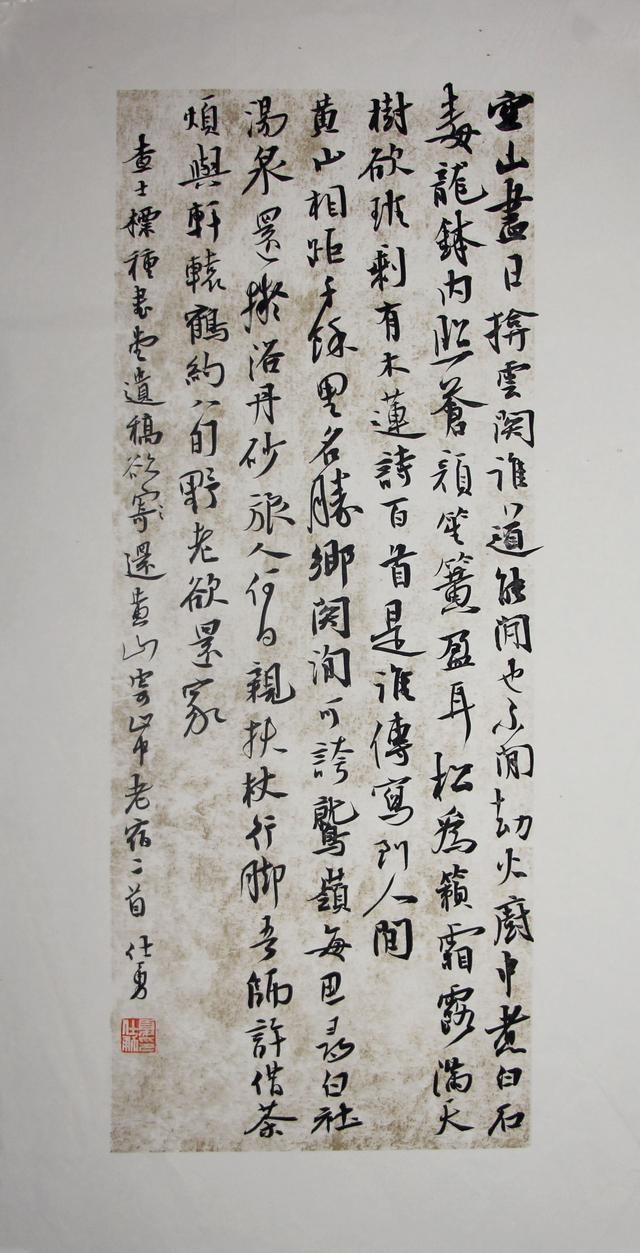 空山盡日揜雲関誰道能閒也不閒劫火廚中煮白石
毒龍鉢内照蒼顔笙簧盈耳松為籟霜露滿天
樹欲斑剩有木蓮詩百首是誰傳寫到人間
黄山相距千餘里名勝鄉関洵可誇鷲嶺每思尋白社
湯泉還擬浴丹砂旅人何日親扶杖行脚吾師許借茶
煩與軒轅鶴約八旬野老欲還家
查士標種書堂遺稿欲寄還黄山雪莊老宿二首 仕勇